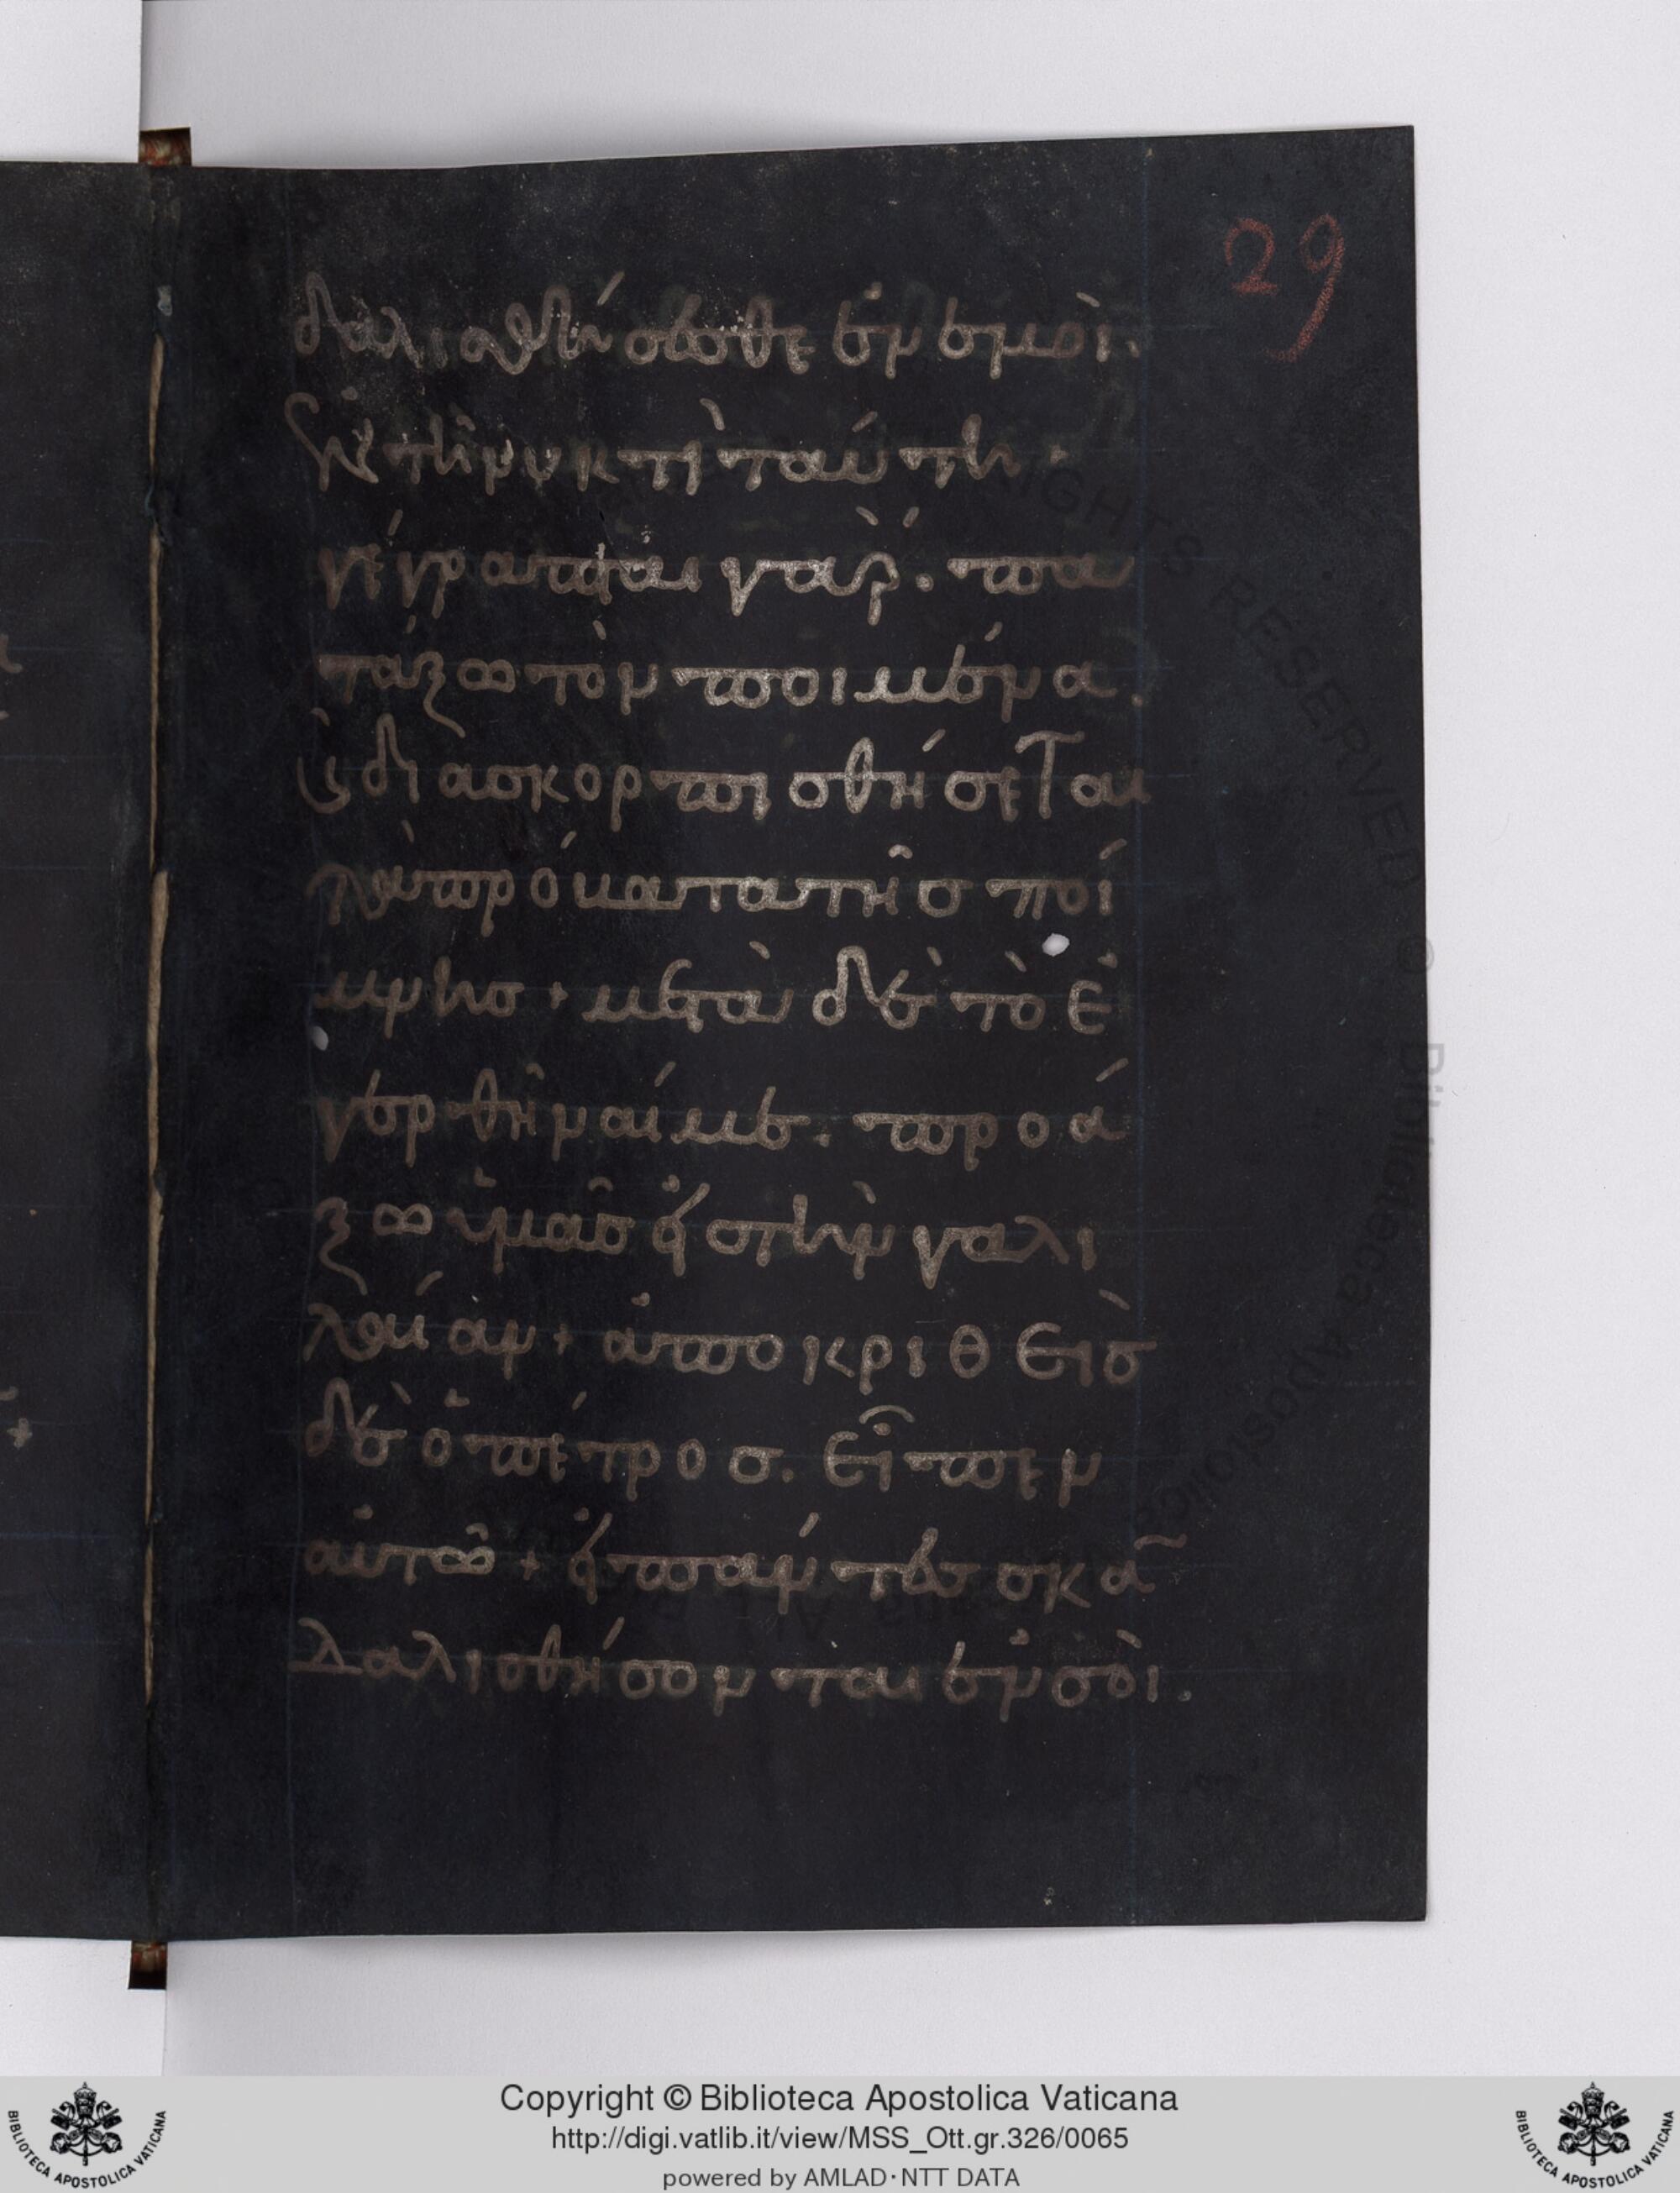 29
δαλισθήσεσθε ἐν ἐμοὶ.
ἐν τῆ νυκτὶ ταύτη.
γέγραπται γὰρ. πα
τάξω τὸν ποιμένα.
καὶ διασκορπισθήσεται
τὰ πρόβατα τῆσ ποί
μνησ + μετὰ δὲ τὸ ἐ
γερθῆναί με. προά
ξω ὑμᾶσ εἰσ τὴν γαλι
λαίαν + ἀποκριθεὶσ
δὲ ὁ πέτροσ. εἶπεν
αὐτῶ + εἰ πάντεσ σκα̅
δαλισθήσονται ἐν σοὶ.
RIGHTS RESERVED © Biblioteca Apostolica
Copyright © Biblioteca Apostolica Vaticana
http://digi.vatlib.it/view/MSS_Ott.gr.326/0065
powered by AMLAD·NTT DATA
BIBLIOTECA APOSTOLICA VATICANA
BIBLIOTECA APOSTOLICA VATICANA